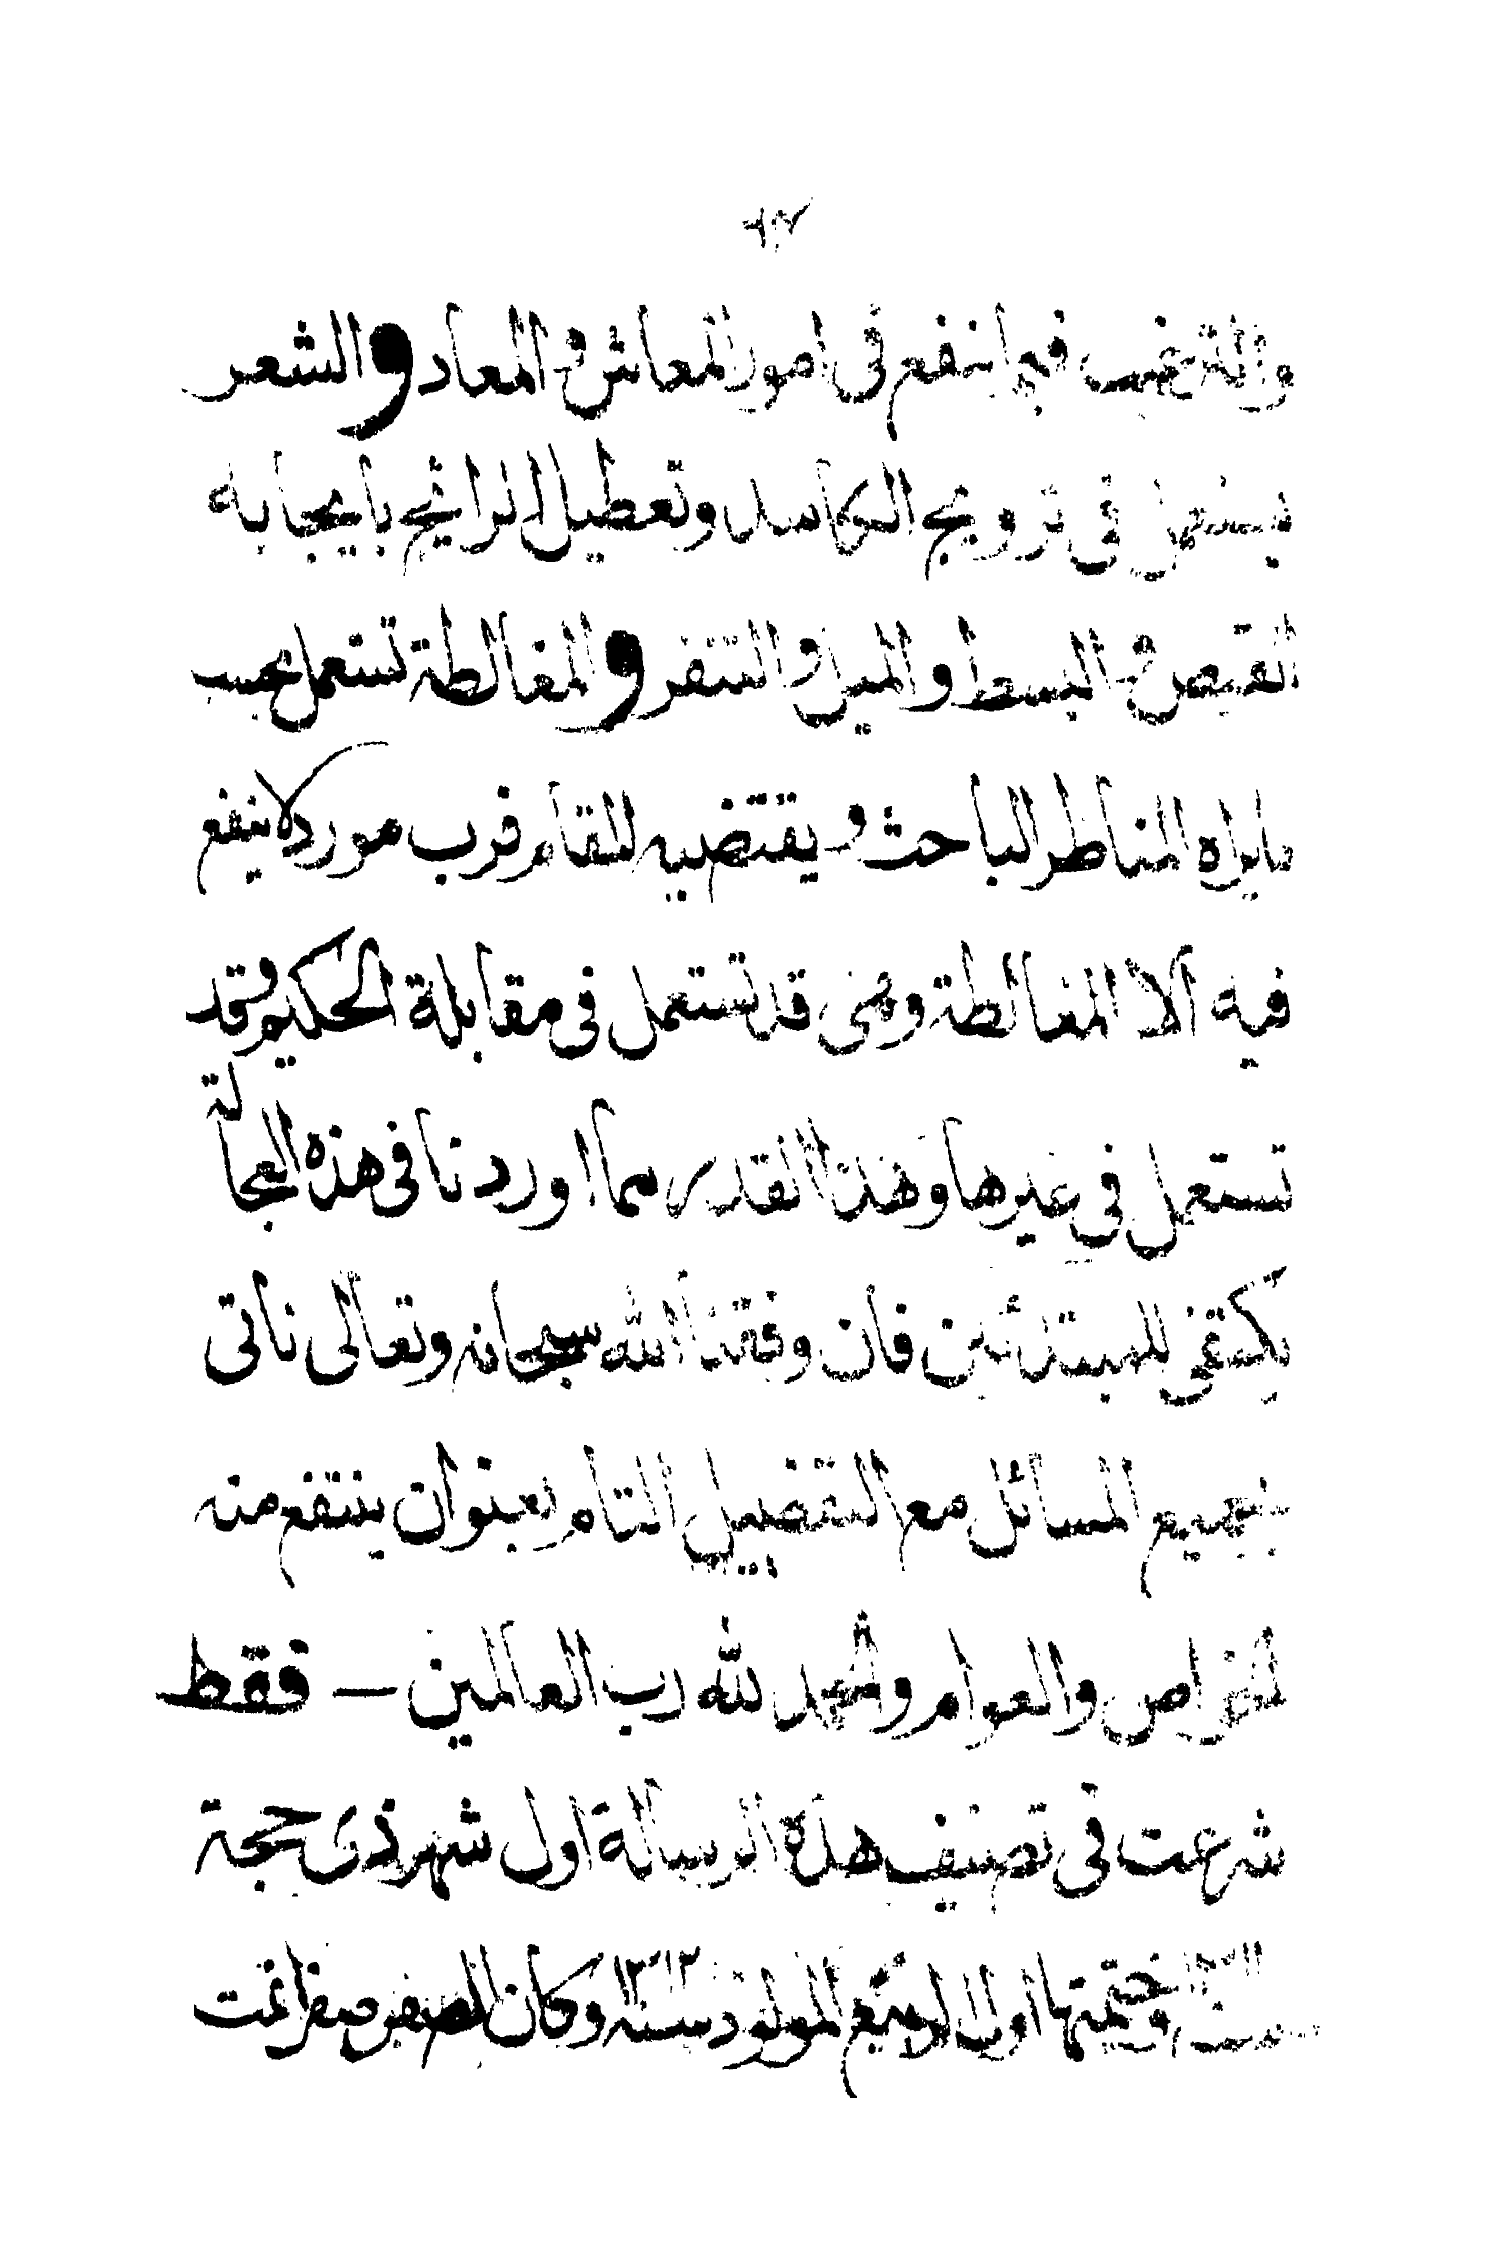 والترغيب فيما ينفع فى امور المعاش و المعاد و الشعر
يستعمل فى ترويج الكاسد وتعطيل الرائج بايجابه
القبض و البسط و الميل و التنفر و المغالطة تستعمل بحسب
مايراه المناظر الباحث و يقتضيه المقام فرب مورد لاينفع
فيه الا المغالطة وهى قد تستعمل فى مقابلة الحكيم وقد
تستعمل فى غيرها وهذا القدر مما اوردنا فى هذه العجالة
يكتفى للمبتدئين فان وفقنا الله سبحانه وتعالى ناتى
بجميع المسائل مع التفصيل التام بعنوان ينتفع منه
الخواص والعوام والحمد لله رب العالمين – فقط
شرعت فى تصنيف هذه الرسالة اول شهر ذى حجة
وختمتها اول الربيع المولود سنه ١٣١٣ وكان الصفر صفرا تمت